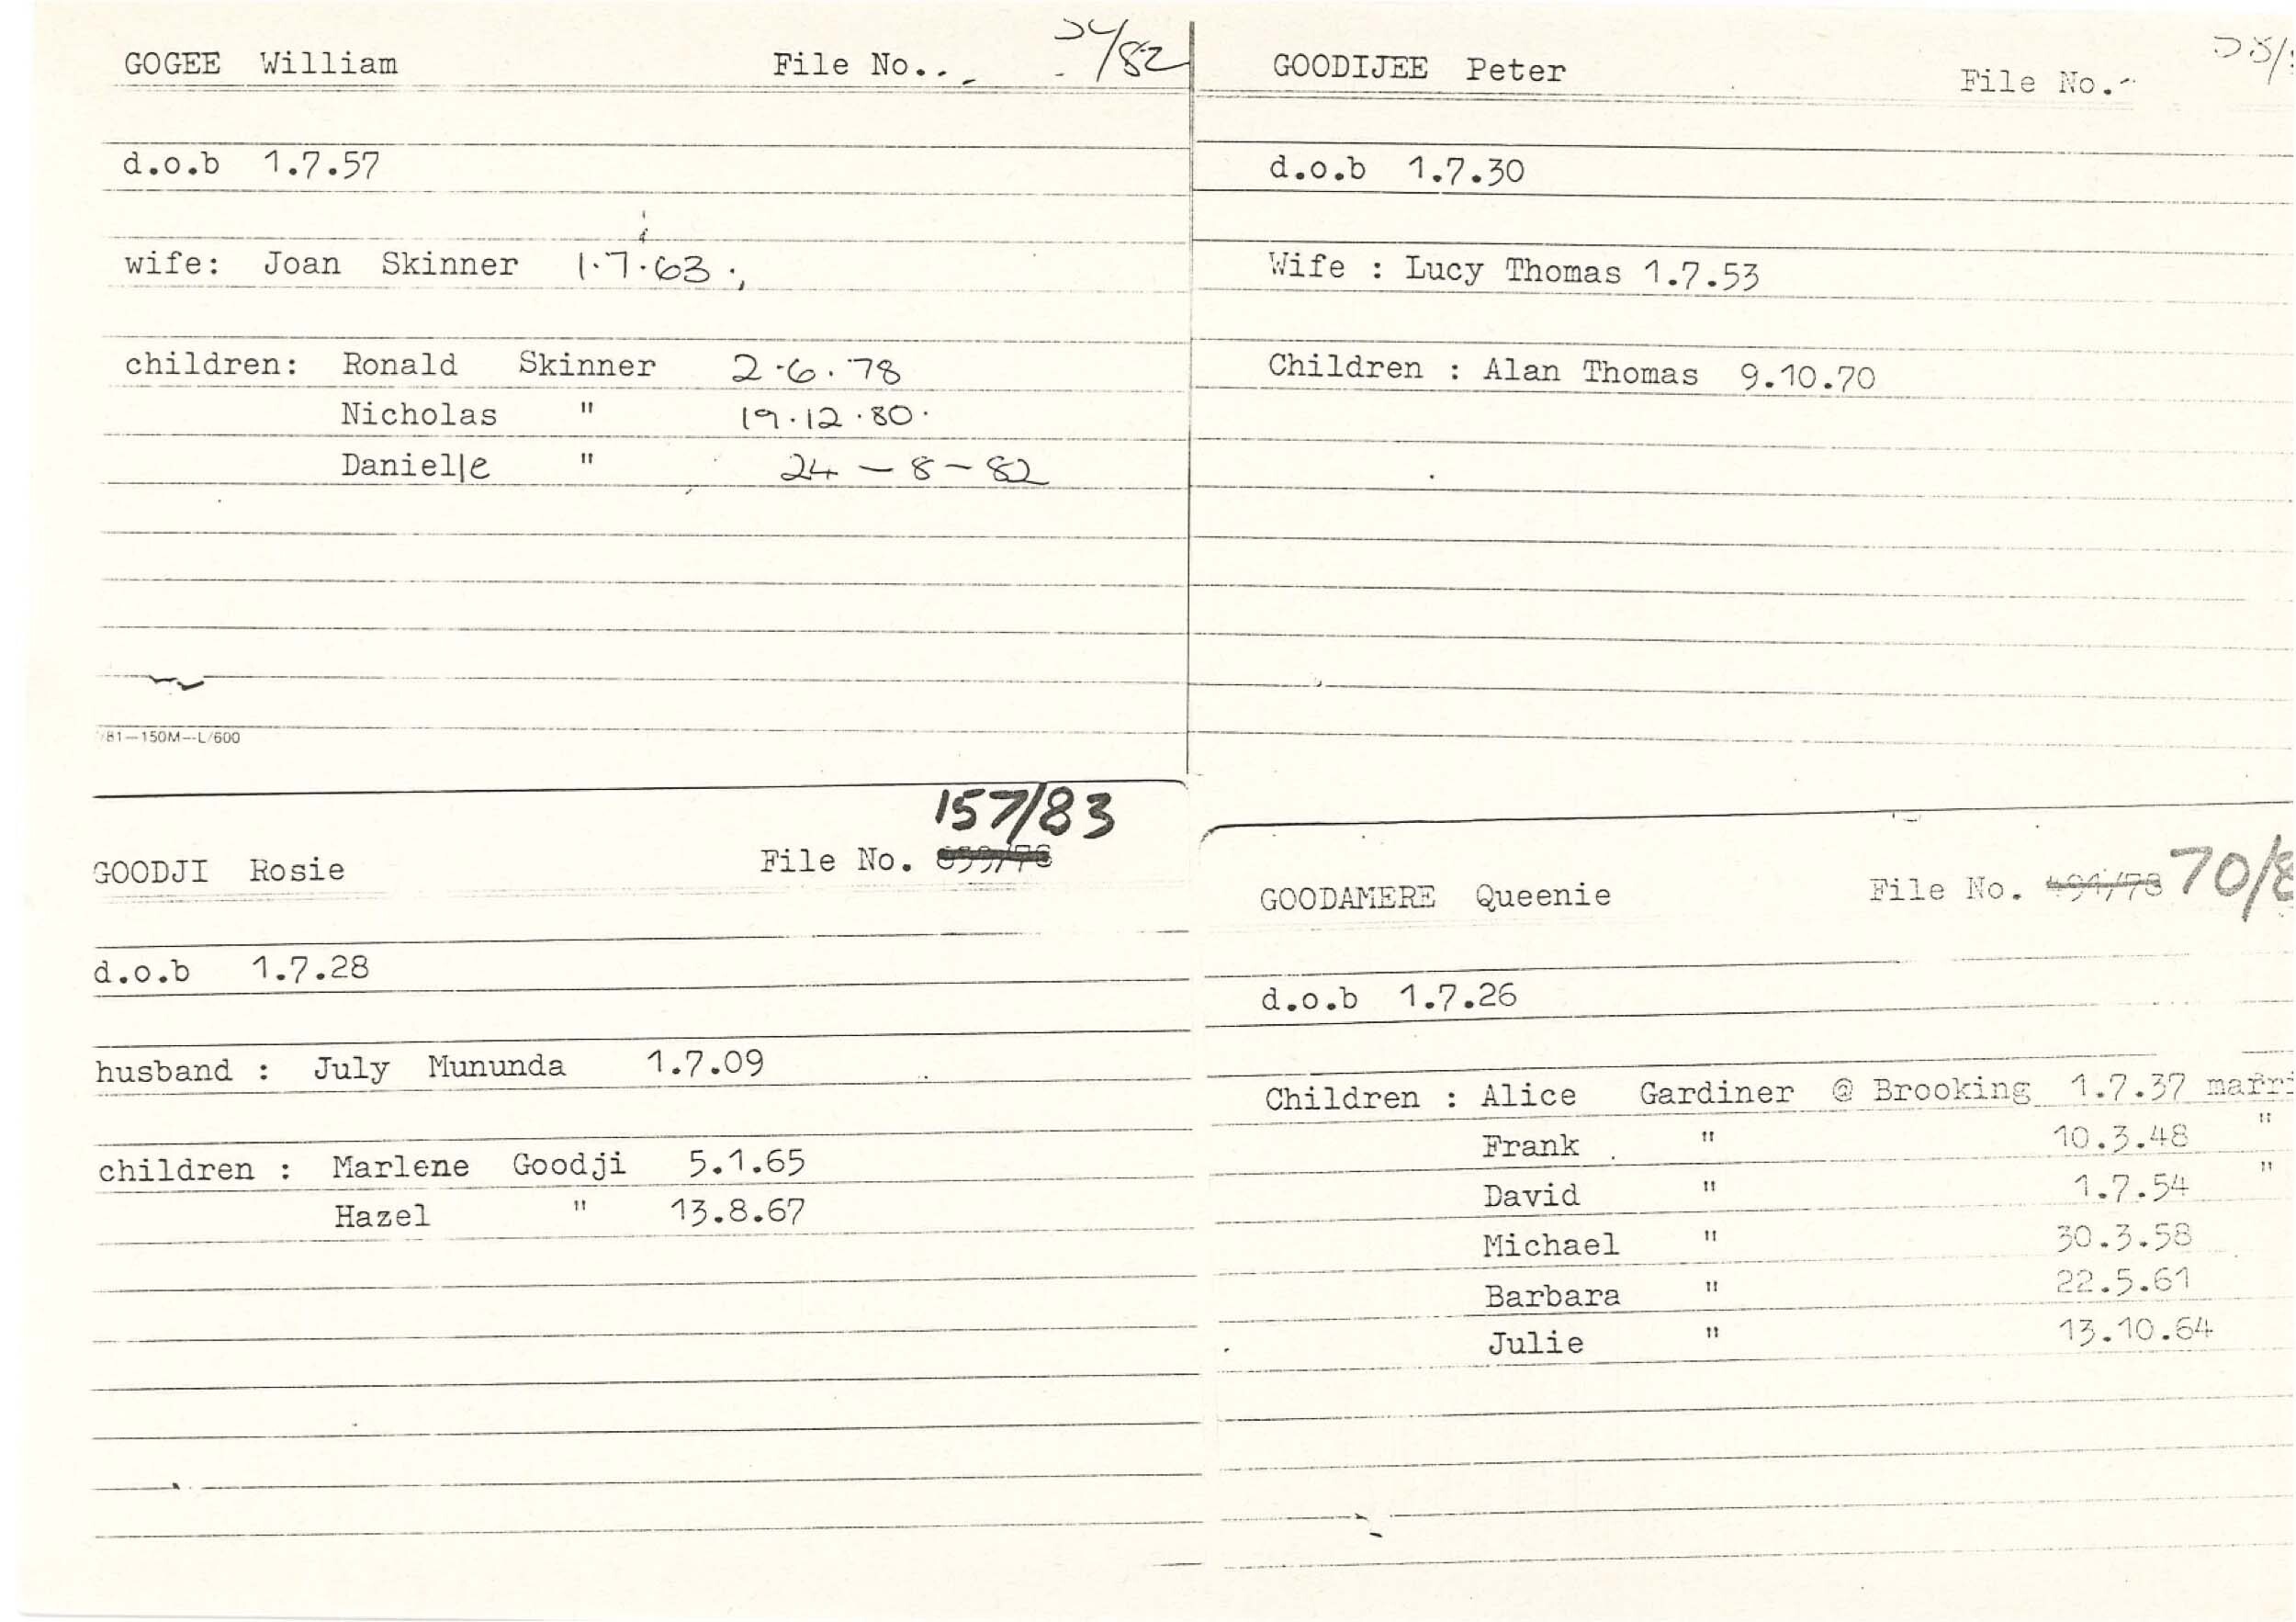 GOGEE William File No... /82
d.o.b 1.7.57
wife: Joan Skinner 1.7.63.,
children: Ronald Skinner 2.6.78
Nicholas " 19.12.80.
Danielle " 24-8-82
81-150M-L/600
GOODIJEE Peter File No.
d.o.b 1.7.30
Wife : Lucy Thomas 1.7.53
Children : Alan Thomas 9.10.70
157/83
GOODJI Rosie File No.
d.o.b 1.7.28
husband : July Mununda 1.7.09
children : Marlene Goodji 5.1.65
Hazel " 13.8.67
GOODAMERE Queenie File No. 491/78 70/8
d.o.b 1.7.26
Children : Alice Gardiner @ Brooking 1.7.37 marri
Frank " 10.3.48 "
David " 1.7.54 "
Michael " 30.3.58
Barbara " 22.5.61
Julie " 13.10.64